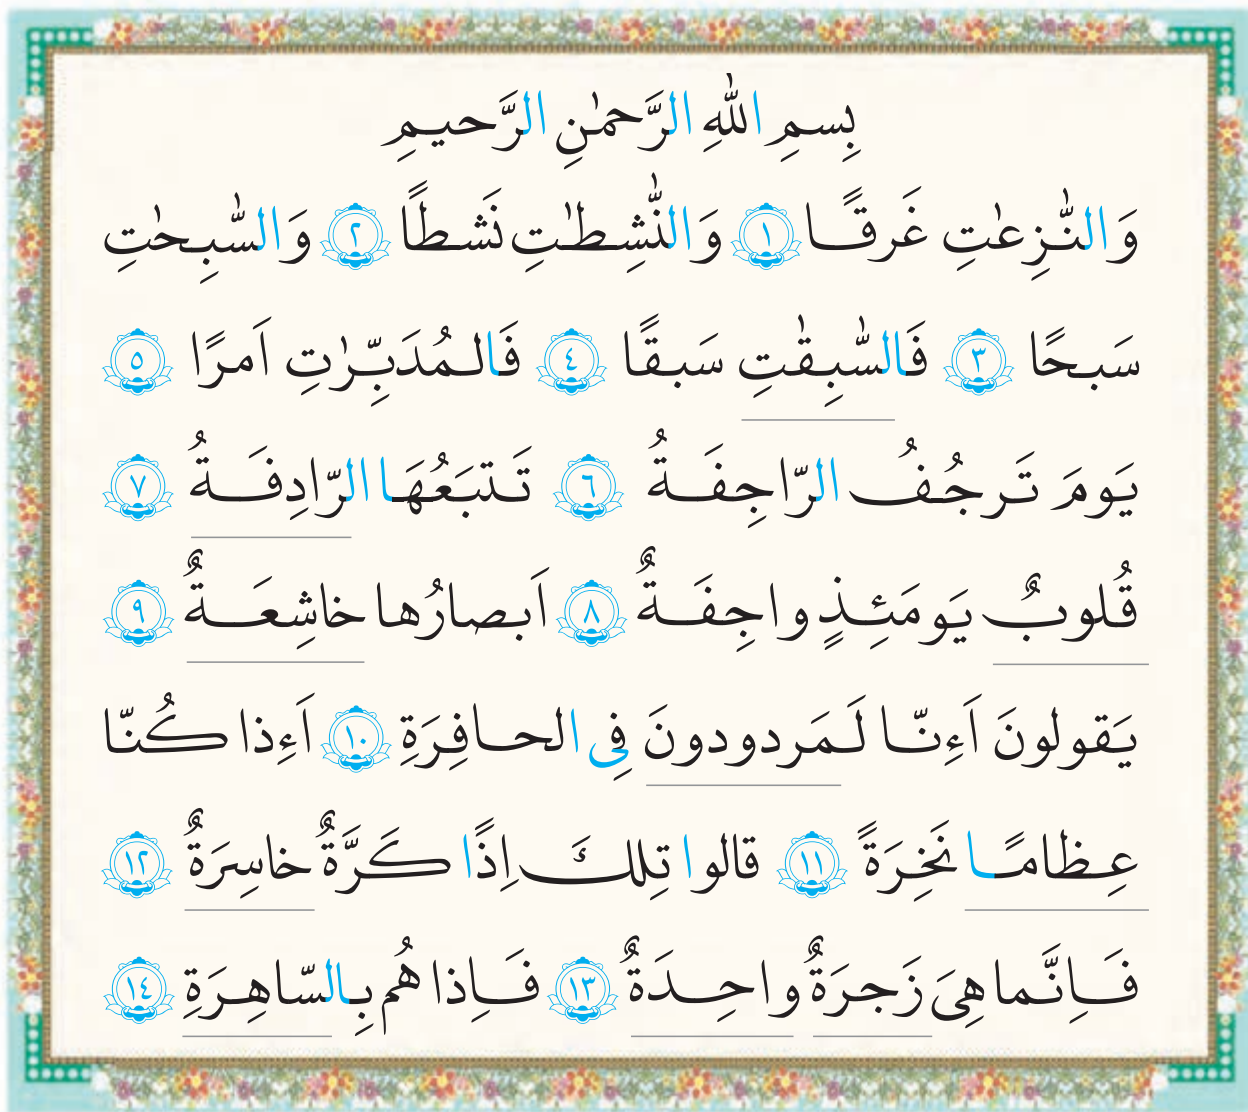 بِسمِ اللّٰهِ الرَّحمٰنِ الرَّحيمِ
وَالنّٰزِعٰتِ غَرقًا ١ وَالنّٰشِطٰتِ نَشطًا ٢ وَالسّٰبِحٰتِ
سَبحًا ٣ فَالسّٰبِقٰتِ سَبقًا ٤ فَالمُدَبِّرٰتِ اَمرًا ٥
يَومَ تَرجُفُ الرّاجِفَةُ ٦ تَتبَعُهَا الرّادِفَةُ ٧
قُلوبٌ يَومَئِذٍ واجِفَةٌ ٨ اَبصارُها خاشِعَةٌ ٩
يَقولونَ اَءِنّا لَمَردودونَ فِى الحافِرَةِ ١٠ اَءِذا كُنّا
عِظامًا نَخِرَةً ١١ قالوا تِلكَ اِذًا كَرَّةٌ خاسِرَةٌ ١٢
فَاِنَّما هِىَ زَجرَةٌ واحِدَةٌ ١٣ فَاِذا هُم بِالسّاهِرَةِ ١٤